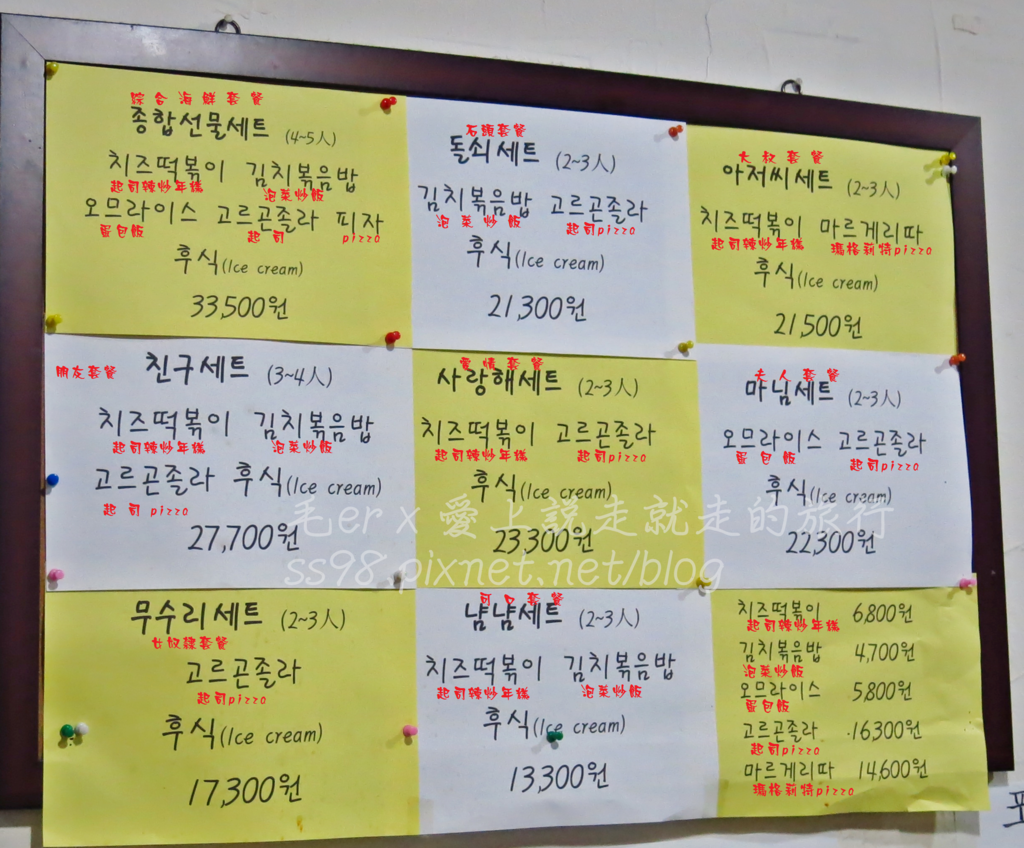 綜合海鮮套餐
종합선물세트 (4~5人)
치즈떡볶이 김치볶음밥
起司辣炒年糕 泡菜炒飯
오므라이스 고르곤졸라 피자
蛋包飯 起司 pizza
후식(Ice cream)
33,500원
石頭套餐
돌쇠세트 (2~3人)
김치볶음밥 고르곤졸라
泡菜炒飯 起司pizza
후식(Ice cream)
21,300원
大叔套餐
아저씨세트 (2~3人)
치즈떡볶이 마르게리따
起司辣炒年糕 瑪格莉特pizza
후식(Ice cream)
21,500원
朋友套餐 친구세트 (3~4人)
치즈떡볶이 김치볶음밥
起司辣炒年糕 泡菜炒飯
고르곤졸라 후식(Ice cream)
起司 pizza
27,700원
愛情套餐
사랑해세트 (2~3人)
치즈떡볶이 고르곤졸라
起司辣炒年糕 起司pizza
후식(Ice cream)
23,300원
夫人套餐
마님세트 (2~3人)
오므라이스 고르곤졸라
蛋包飯 起司pizza
후식(Ice cream)
22,300원
毛er x 愛上說走就走的旅行
ss98.pixnet.net/blog
무수리세트 (2~3人)
女奴隸套餐
고르곤졸라
起司pizza
후식(Ice cream)
17,300원
可口套餐
냠냠세트 (2~3人)
치즈떡볶이 김치볶음밥
起司辣炒年糕 泡菜炒飯
후식(Ice cream)
13,300원
치즈떡볶이 6,800원
起司辣炒年糕
김치볶음밥 4,700원
泡菜炒飯
오므라이스 5,800원
蛋包飯
고르곤졸라 16,300원
起司pizza
마르게리따 14,600원
瑪格莉特pizza